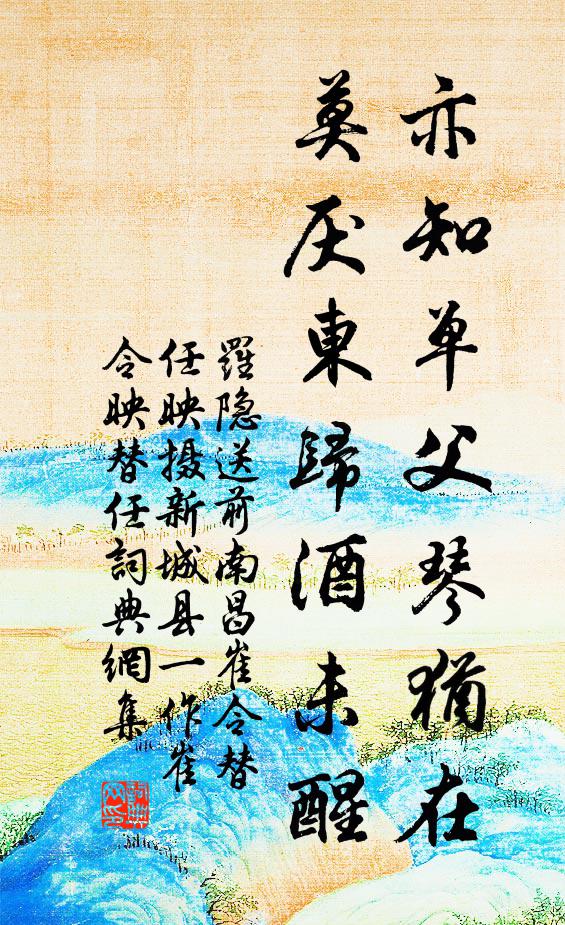 亦知单父琴猶在
莫厌東歸酒未醒
羅隐送前南昌崔令替
任映摄新城县一作崔
令映替任詞典網集